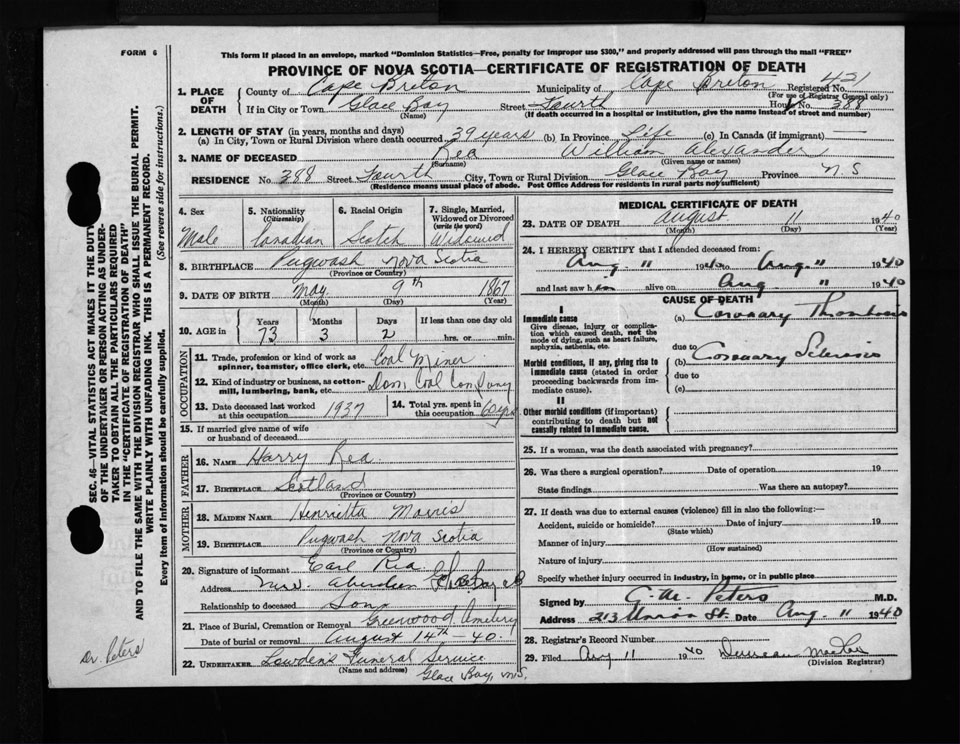 FORM 6
This form if placed in an envelope, marked "Dominion Statistics—Free, penalty for improper use $300," and properly addressed will pass through the mail "FREE"
PROVINCE OF NOVA SCOTIA—CERTIFICATE OF REGISTRATION OF DEATH
1. PLACE OF DEATH
County of Cape Breton Municipality of Cape Breton Registered No. 421
(For use of Registrar General only)
If in City or Town Glace Bay Street Fourth House No. 388
(Name) (If death occurred in a hospital or institution, give the name instead of street and number)
2. LENGTH OF STAY (in years, months and days)
(a) In City, Town or Rural Division where death occurred 39 years (b) In Province Life (c) In Canada (if immigrant)
3. NAME OF DECEASED Rea William Alexander
(Surname) (Given name or names)
RESIDENCE No. 388 Street Fourth City, Town or Rural Division Glace Bay Province N.S
(Residence means usual place of abode. Post Office Address for residents in rural parts not sufficient)
4. Sex 5. Nationality (Citizenship) 6. Racial Origin 7. Single, Married, Widowed or Divorced (write the word)
Male Canadian Scotch Widowed
8. BIRTHPLACE Pugwash Nova Scotia
(Province or Country)
9. DATE OF BIRTH May 9th 1867
(Month) (Day) (Year)
10. AGE in Years Months Days If less than one day old
73 3 2 hrs. or min.
OCCUPATION
11. Trade, profession or kind of work as spinner, teamster, office clerk, etc. Coal Miner
12. Kind of industry or business, as cotton-mill, lumbering, bank, etc. Dom Coal Company
13. Date deceased last worked at this occupation 1937
14. Total yrs. spent in this occupation 60 yrs
15. If married give name of wife or husband of deceased
FATHER
16. NAME Harry Rea
17. BIRTHPLACE Scotland
(Province or Country)
MOTHER
18. MAIDEN NAME Henrietta Morris
19. BIRTHPLACE Pugwash Nova Scotia
(Province or Country)
20. Signature of informant Earl Rea
Address Aberdeen Glace Bay
Relationship to deceased Son
21. Place of Burial, Cremation or Removal Greenwood Cemetery
Date of burial or removal August 14th - 40.
22. UNDERTAKER Lowden's Funeral Service
(Name and address)
Glace Bay, N.S.
MEDICAL CERTIFICATE OF DEATH
23. DATE OF DEATH August 11 1940
(Month) (Day) (Year)
24. I HEREBY CERTIFY that I attended deceased from
Aug 11 1940 to Aug. 11 1940
and last saw him alive on Aug 11 1940
CAUSE OF DEATH
I
Immediate cause
Give disease, injury or complication which caused death, not the mode of dying, such as heart failure, asphyxia, asthenia, etc.
(a) Coronary Thrombosis
due to
Morbid conditions, if any, giving rise to immediate cause (stated in order proceeding backwards from immediate cause).
(b) Coronary Sclerosis
due to
(c)
II
Other morbid conditions (if important) contributing to death but not causally related to immediate cause.
25. If a woman, was the death associated with pregnancy?
26. Was there a surgical operation? Date of operation 19
State findings Was there an autopsy?
27. If death was due to external causes (violence) fill in also the following:—
Accident, suicide or homicide? Date of injury 19
(State which)
Manner of injury
(How sustained)
Nature of injury
Specify whether injury occurred in industry, in home, or in public place
Signed by C. M. Peters M.D.
Address 213 Union St. Date Aug. 11 1940
28. Registrar's Record Number
29. Filed Aug 11 1940 Duncan
(Division Registrar)
SEC. 46—VITAL STATISTICS ACT MAKES IT THE DUTY
OF THE UNDERTAKER OR PERSON ACTING AS UNDER-
TAKER TO OBTAIN ALL THE PARTICULARS REQUIRED
IN THE "CERTIFICATE OF REGISTRATION OF DEATH"
AND TO FILE THE SAME WITH THE DIVISION REGISTRAR WHO SHALL ISSUE THE BURIAL PERMIT.
WRITE PLAINLY WITH UNFADING INK. THIS IS A PERMANENT RECORD.
Every item of information should be carefully supplied. (See reverse side for instructions.)
Dr. Peters